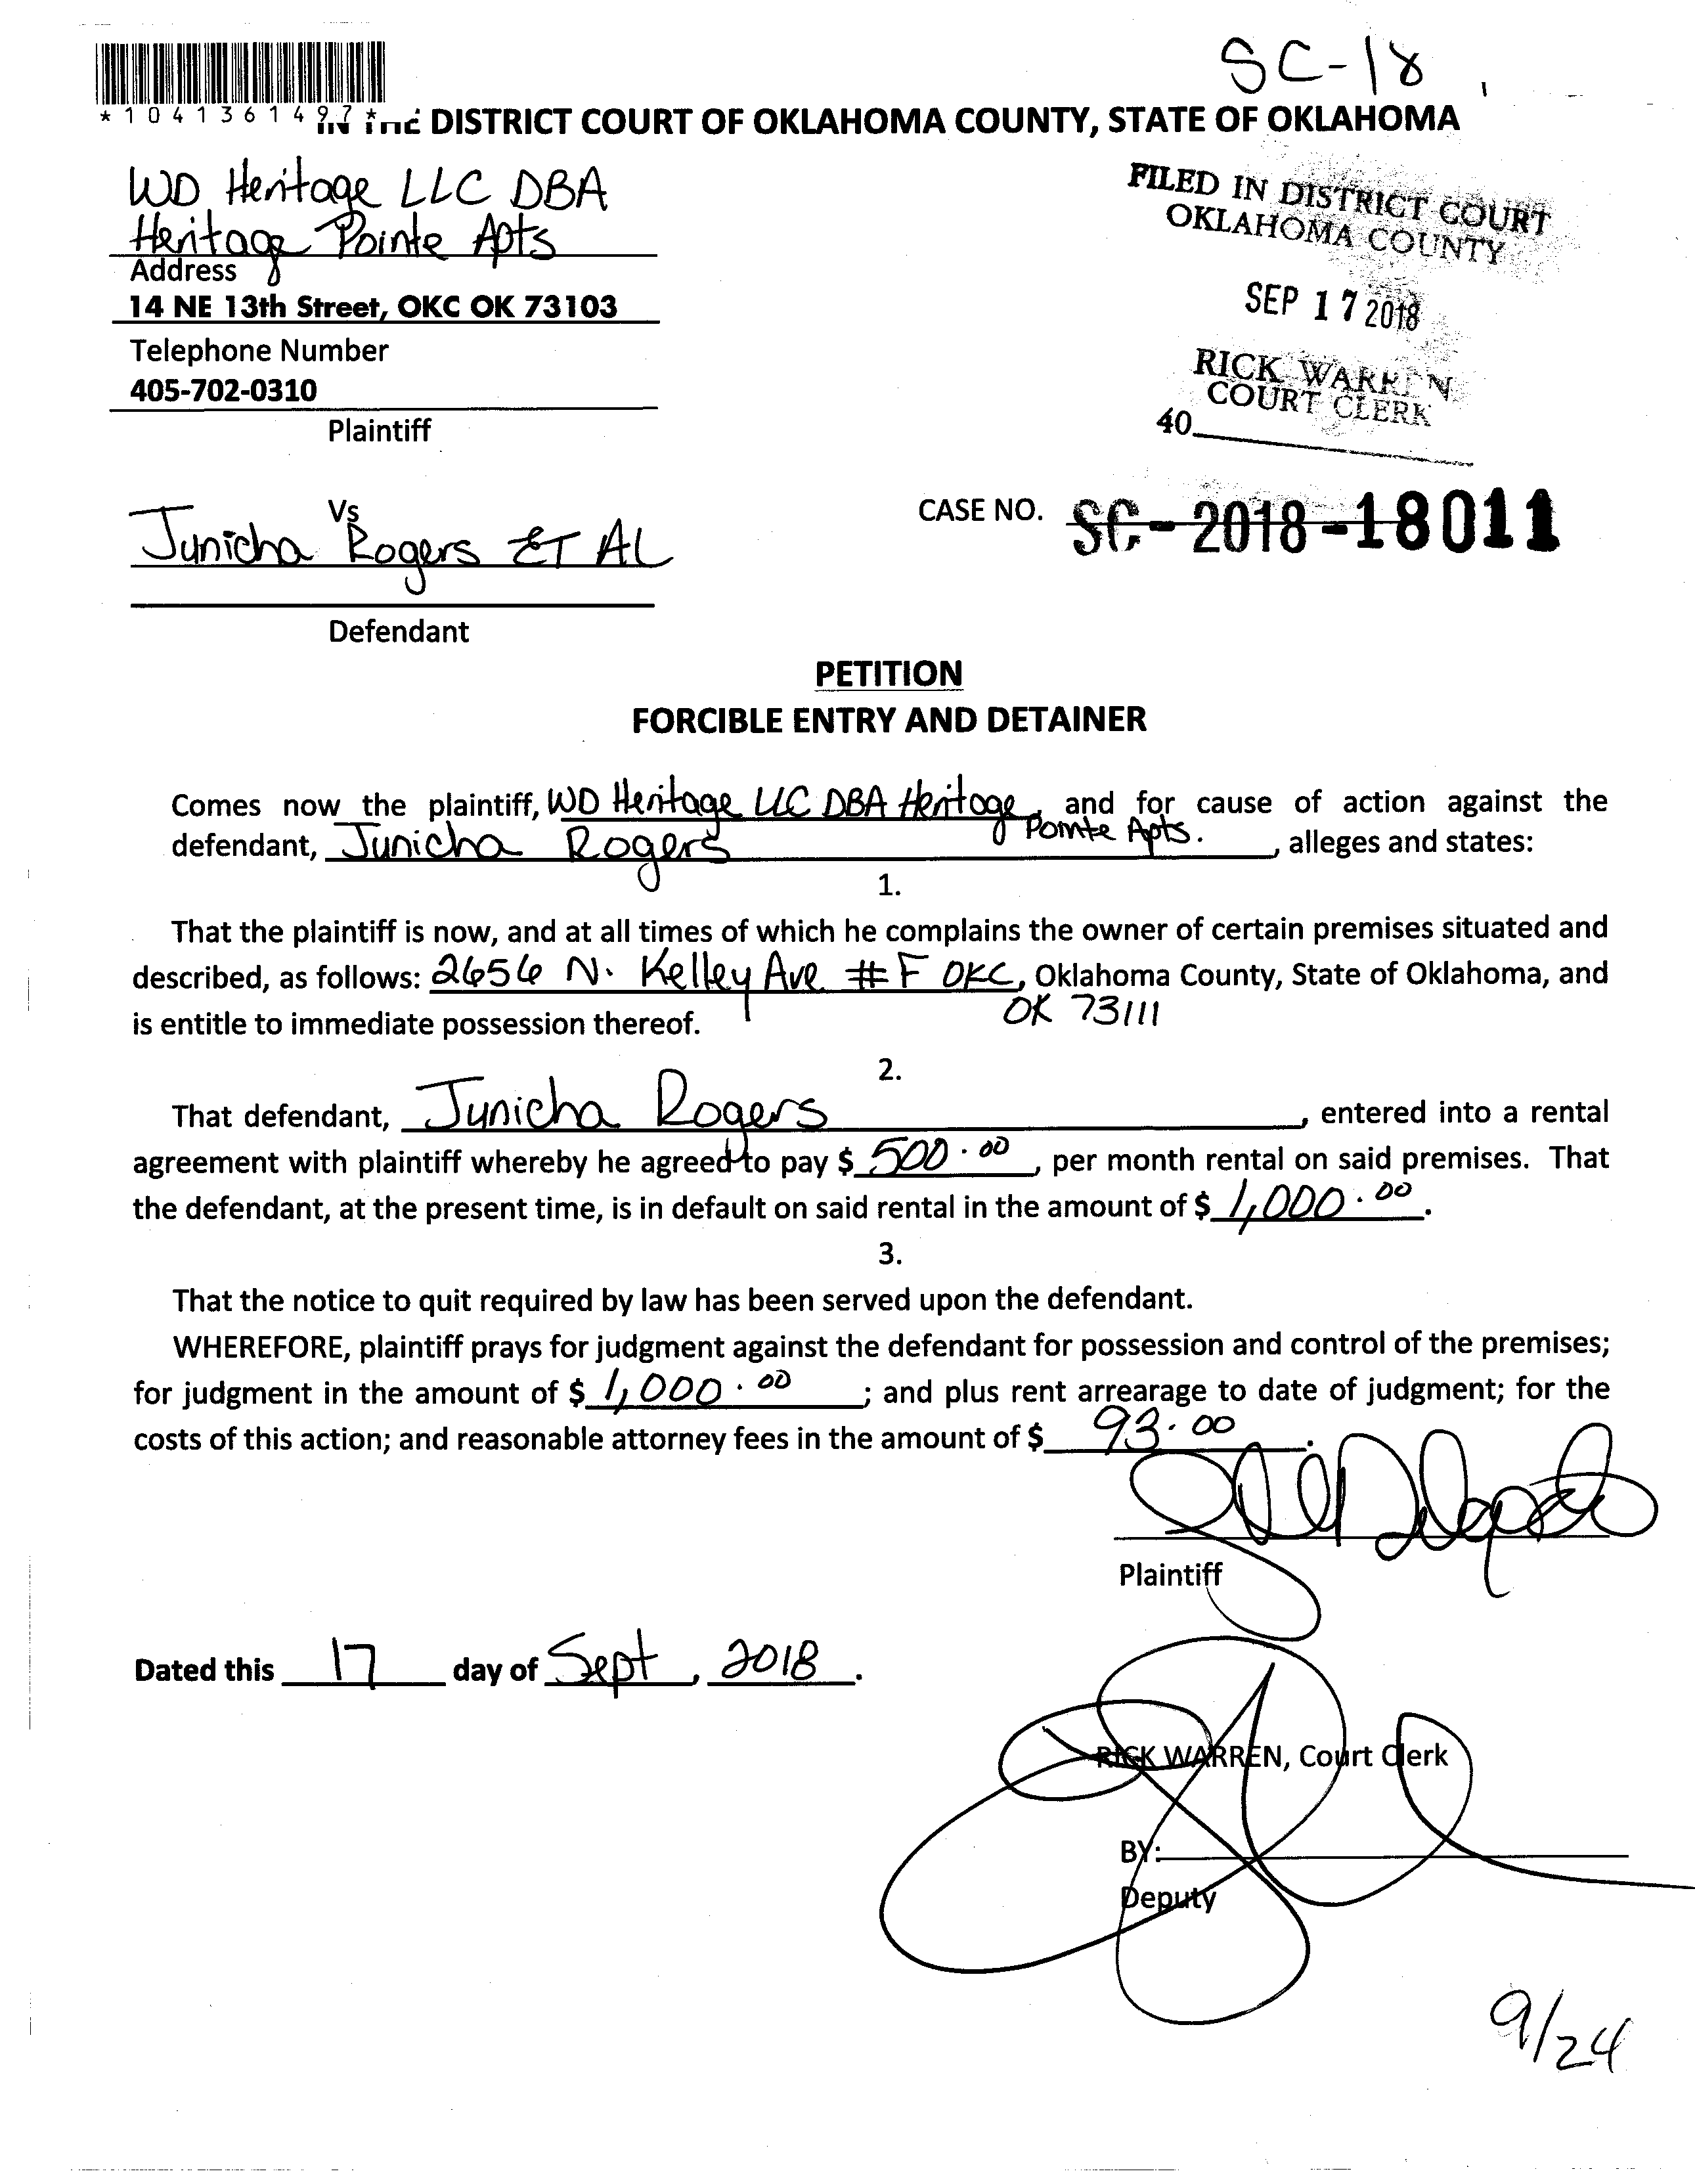 SC-18
*1041361497*
IN THE DISTRICT COURT OF OKLAHOMA COUNTY, STATE OF OKLAHOMA
WD Heritage LLC DBA
Heritage Pointe Apts
Address
14 NE 13th Street, OKC OK 73103
Telephone Number
405-702-0310
Plaintiff
FILED IN DISTRICT COURT
OKLAHOMA COUNTY
SEP 17 2018
RICK WARREN
COURT CLERK
40
Vs
Junicha Rogers ET AL
Defendant
CASE NO. SC-2018-18011
PETITION
FORCIBLE ENTRY AND DETAINER
Comes now the plaintiff, WD Heritage LLC DBA Heritage, and for cause of action against the
Pointe Apts.
defendant, Junicha Rogers, alleges and states:
1.
That the plaintiff is now, and at all times of which he complains the owner of certain premises situated and
described, as follows: 2656 N. Kelley Ave #F OKC, Oklahoma County, State of Oklahoma, and
OK 73111
is entitle to immediate possession thereof.
2.
That defendant, Junicha Rogers, entered into a rental
agreement with plaintiff whereby he agreed to pay $ 500.00, per month rental on said premises. That
the defendant, at the present time, is in default on said rental in the amount of $ 1,000.00.
3.
That the notice to quit required by law has been served upon the defendant.
WHEREFORE, plaintiff prays for judgment against the defendant for possession and control of the premises;
for judgment in the amount of $ 1,000.00; and plus rent arrearage to date of judgment; for the
costs of this action; and reasonable attorney fees in the amount of $ 93.00.
Plaintiff
Dated this 17 day of Sept, 2018.
RICK WARREN, Court Clerk
BY:
Deputy
9/24